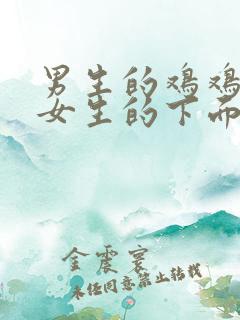 男生的鸡鸡
女生的下面
金震寰
未经同意禁止转载